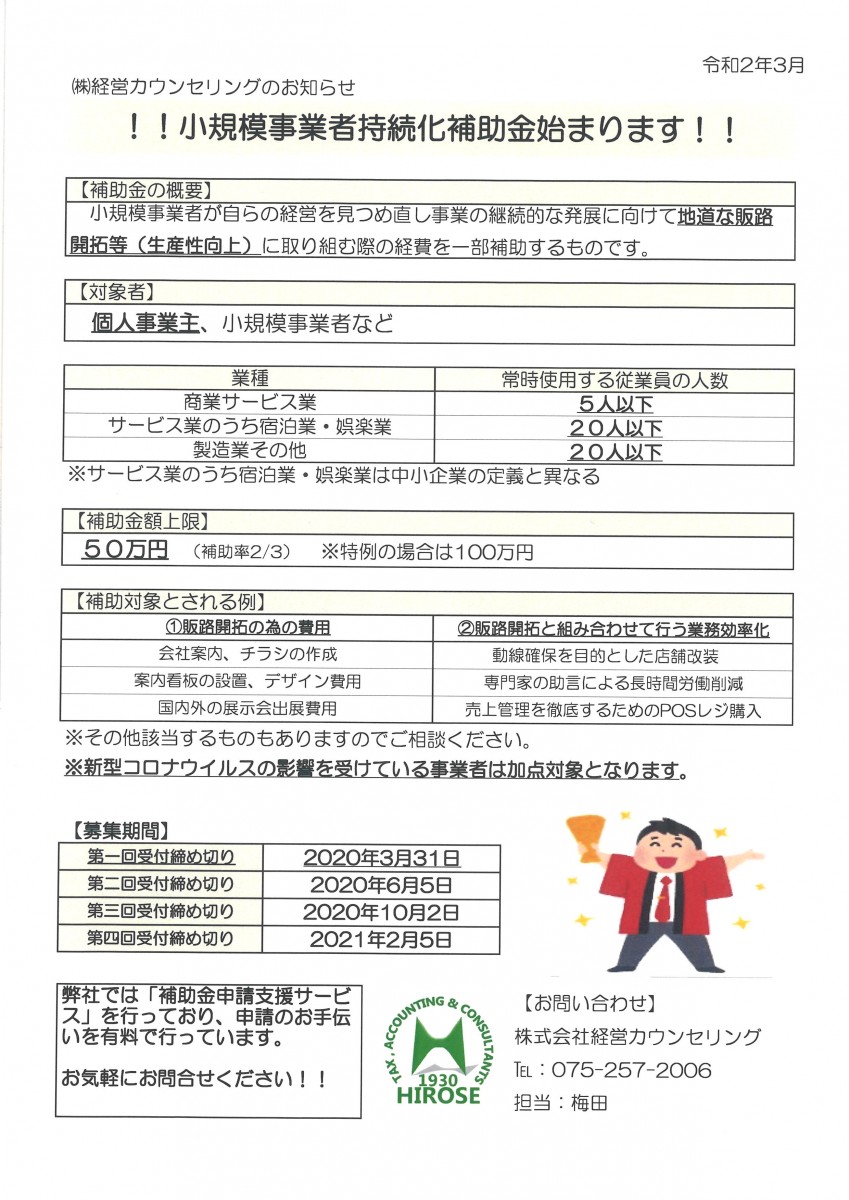 令和2年3月
㈱経営カウンセリングのお知らせ
！！小規模事業者持続化補助金始まります！！
【補助金の概要】
小規模事業者が自らの経営を見つめ直し事業の継続的な発展に向けて地道な販路
開拓等（生産性向上）に取り組む際の経費を一部補助するものです。
【対象者】
個人事業主、小規模事業者など
業種 常時使用する従業員の人数
商業サービス業 ５人以下
サービス業のうち宿泊業・娯楽業 ２０人以下
製造業その他 ２０人以下
※サービス業のうち宿泊業・娯楽業は中小企業の定義と異なる
【補助金額上限】
５０万円 （補助率2/3） ※特例の場合は100万円
【補助対象とされる例】
①販路開拓の為の費用 ②販路開拓と組み合わせて行う業務効率化
会社案内、チラシの作成 動線確保を目的とした店舗改装
案内看板の設置、デザイン費用 専門家の助言による長時間労働削減
国内外の展示会出展費用 売上管理を徹底するためのPOSレジ購入
※その他該当するものもありますのでご相談ください。
※新型コロナウイルスの影響を受けている事業者は加点対象となります。
【募集期間】
第一回受付締め切り 2020年3月31日
第二回受付締め切り 2020年6月5日
第三回受付締め切り 2020年10月2日
第四回受付締め切り 2021年2月5日
弊社では「補助金申請支援サービ
ス」を行っており、申請のお手伝
いを有料で行っています。
お気軽にお問合せください！！
TAX, ACCOUNTING & CONSULTANTS
1930
HIROSE
【お問い合わせ】
株式会社経営カウンセリング
℡：075-257-2006
担当：梅田